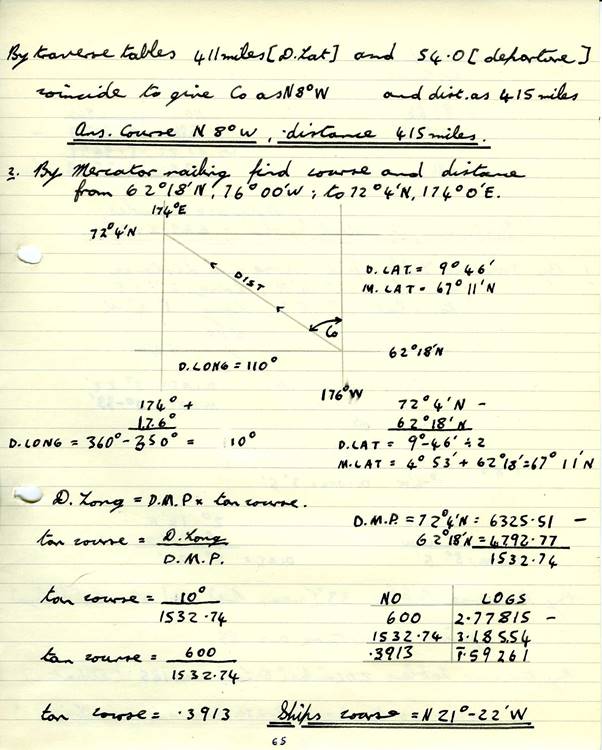 By traverse tables 411 miles [D.Lat] and 54.0 [departure]
coincide to give Co as N8°W and dist. as 415 miles
Ans. Course N 8° W, distance 415 miles.
2. By Mercator sailing find course and distance
from 62° 18' N, 76° 00' W; to 72° 4' N, 174° 0' E.
174°E
72° 4' N
DIST
D. LAT. = 9° 46'
M. LAT = 67° 11' N
Co
62° 18' N
D. LONG = 110°
176° W
174° + 72° 4' N -
176° 62° 18' N
D. LONG = 360° - 350° = 10° D. LAT = 9° - 46' ÷ 2
M. LAT = 4° 53' + 62° 18' = 67° 11' N
D. Long = D.M.P x tan course.
D.M.P. = 72° 4' N = 6325.51 -
tan course = D. Long 62° 18' N = 4792.77
D.M.P. 1532.74
tan course = 10° NO LOGS
1532.74 600 2.77815 -
1532.74 3.18554
tan course = 600 .3913 1̅.59261
1532.74
tan course = .3913 Ships course = N 21° - 22' W
65